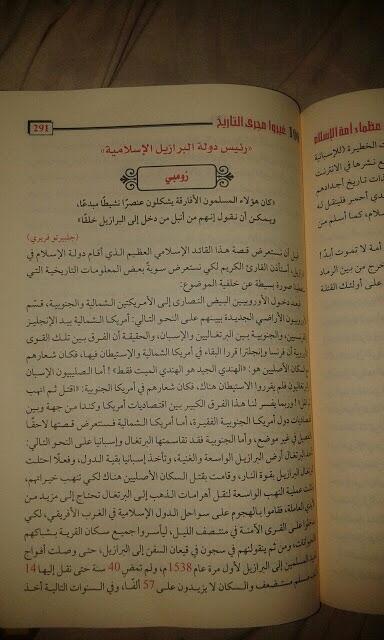 291
غيروا مجرى التاريخ
«رئيس دولة البرازيل الإسلامية»
زومبي
«كان هؤلاء المسلمون الأفارقة يشكلون عنصرًا نشيطًا مبدعًا،
ويمكن أن نقول إنهم من أنبل من دخل إلى البرازيل خلقًا»
(جلبيرتو فريري)
أن نستعرض قصة هذا القائد الإسلامي العظيم الذي أقام دولة الإسلام في
أستأذن القارئ الكريم لكي نستعرض سوية بعض المعلومات التاريخية التي
صورة بسيطة عن خلفية الموضوع:
دخول الأوروبيين البيض النصارى إلى الأمريكتين الشمالية والجنوبية، قسّم
الأراضي الجديدة بينهم على النحو التالي: أمريكا الشمالية بيد الإنجليز
والجنوبية بين البرتغاليين والإسبان، والحقيقة أن الفرق بين تلك القوى
أن فرنسا وإنجلترا قررا البقاء في أمريكا الشمالية والإستيطان فيها، فكان شعارهم
السكان الأصليين هو: «الهندي الجيد هو الهندي الميت فقط»! أما الصليبيون الإسبان
فلم يقرروا الاستيطان هناك، فكان شعارهم في أمريكا الجنوبية: «اقتل ثم انهب
وربما يفسر لنا هذا الفرق الكبير بين اقتصاديات أمريكا وكندا من جهة وبين
دول أمريكا الجنوبية الفقيرة، أما أمريكا الشمالية فسنتعرض قصتها لاحقًا
في غير موضع، وأما الجنوبية فقد تقاسمتها البرتغال وإسبانيا على النحو التالي:
البرتغال أرض البرازيل الواسعة والغنية، وتأخذ إسبانيا بقية الدول، وفعلًا احتلت
البرتغال البرازيل بقوة النار، وقامت بقتل السكان الأصليين هناك لكي تنهب خيراتهم،
عملية النهب الواسعة لنقل أهرامات الذهب إلى البرتغال تحتاج إلى مزيد من
العاملة، فقاموا بالهجوم على سواحل الدول الإسلامية في الغرب الأفريقي، لكي
على القرى الآمنة في منتصف الليل، ليأسروا جميع سكان القرية بشباكهم
ومن ثم ينقلونهم في سجون في قيعان السفن إلى البرازيل، حتى وصلت أفواج
المسلمين إلى البرازيل لأول مرة عام 1538م، ولم تمض 40 سنة حتى نقل إليها 14
مسلم مستضعف والسكان لا يزيدون على 57 ألفًا، وفي السنوات التالية أخذ